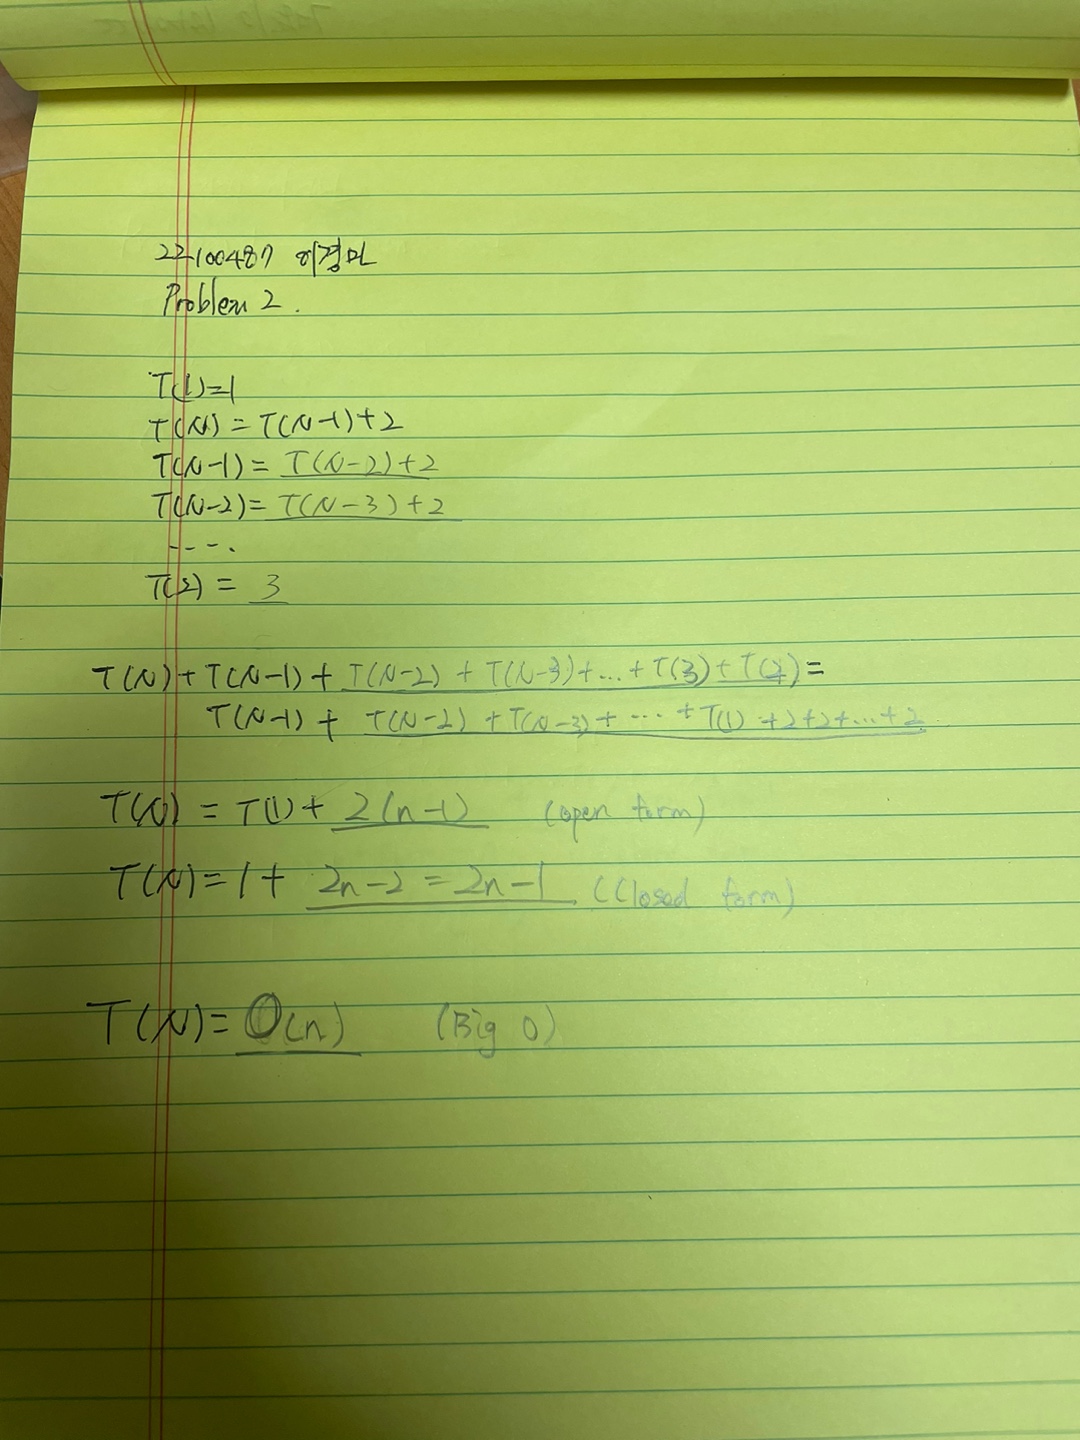 22100487 이경민
Problem 2.
T(1)=1
T(N) = T(N-1)+2
T(N-1) = T(N-2)+2
T(N-2)= T(N-3)+2
....
T(2) = 3
T(N)+T(N-1)+ T(N-2) + T(N-3)+...+T(3)+T(2)=
T(N-1) + T(N-2) +T(N-3)+ ... +T(1) +2+2+...+2
T(N) = T(1)+ 2(n-1) (open form)
T(N)=1+ 2n-2 = 2n-1 (Closed form)
T(N)= O(n) (Big O)